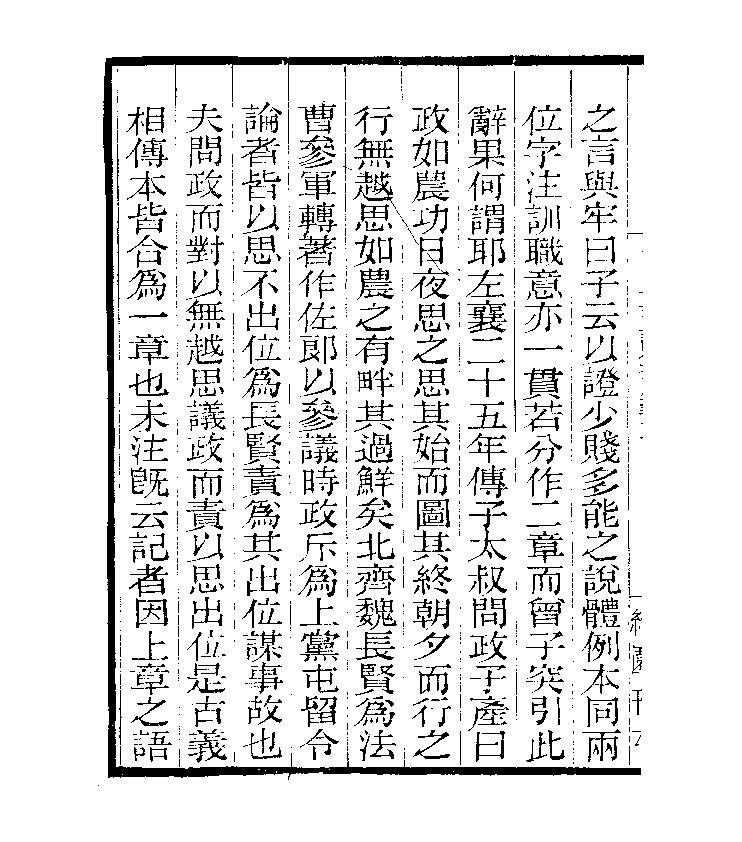 之言與牢曰子云以證少賤多能之說體例本同兩
位字注訓職意亦一貫若分作二章而曾子突引此
辭果何謂耶左襄二十五年傳子太叔問政子產曰
政如農功日夜思之思其始而圖其終朝夕而行之
行無越思如農之有畔其過鮮矣北齊魏長賢為法
曹參軍轉著作佐郎以參議時政斥為上黨屯留令
論者皆以思不出位為長賢責為其出位謀事故也
夫問政而對以無越思議政而責以思出位是古義
相傳本皆合為一章也朱注旣云記者因上章之語